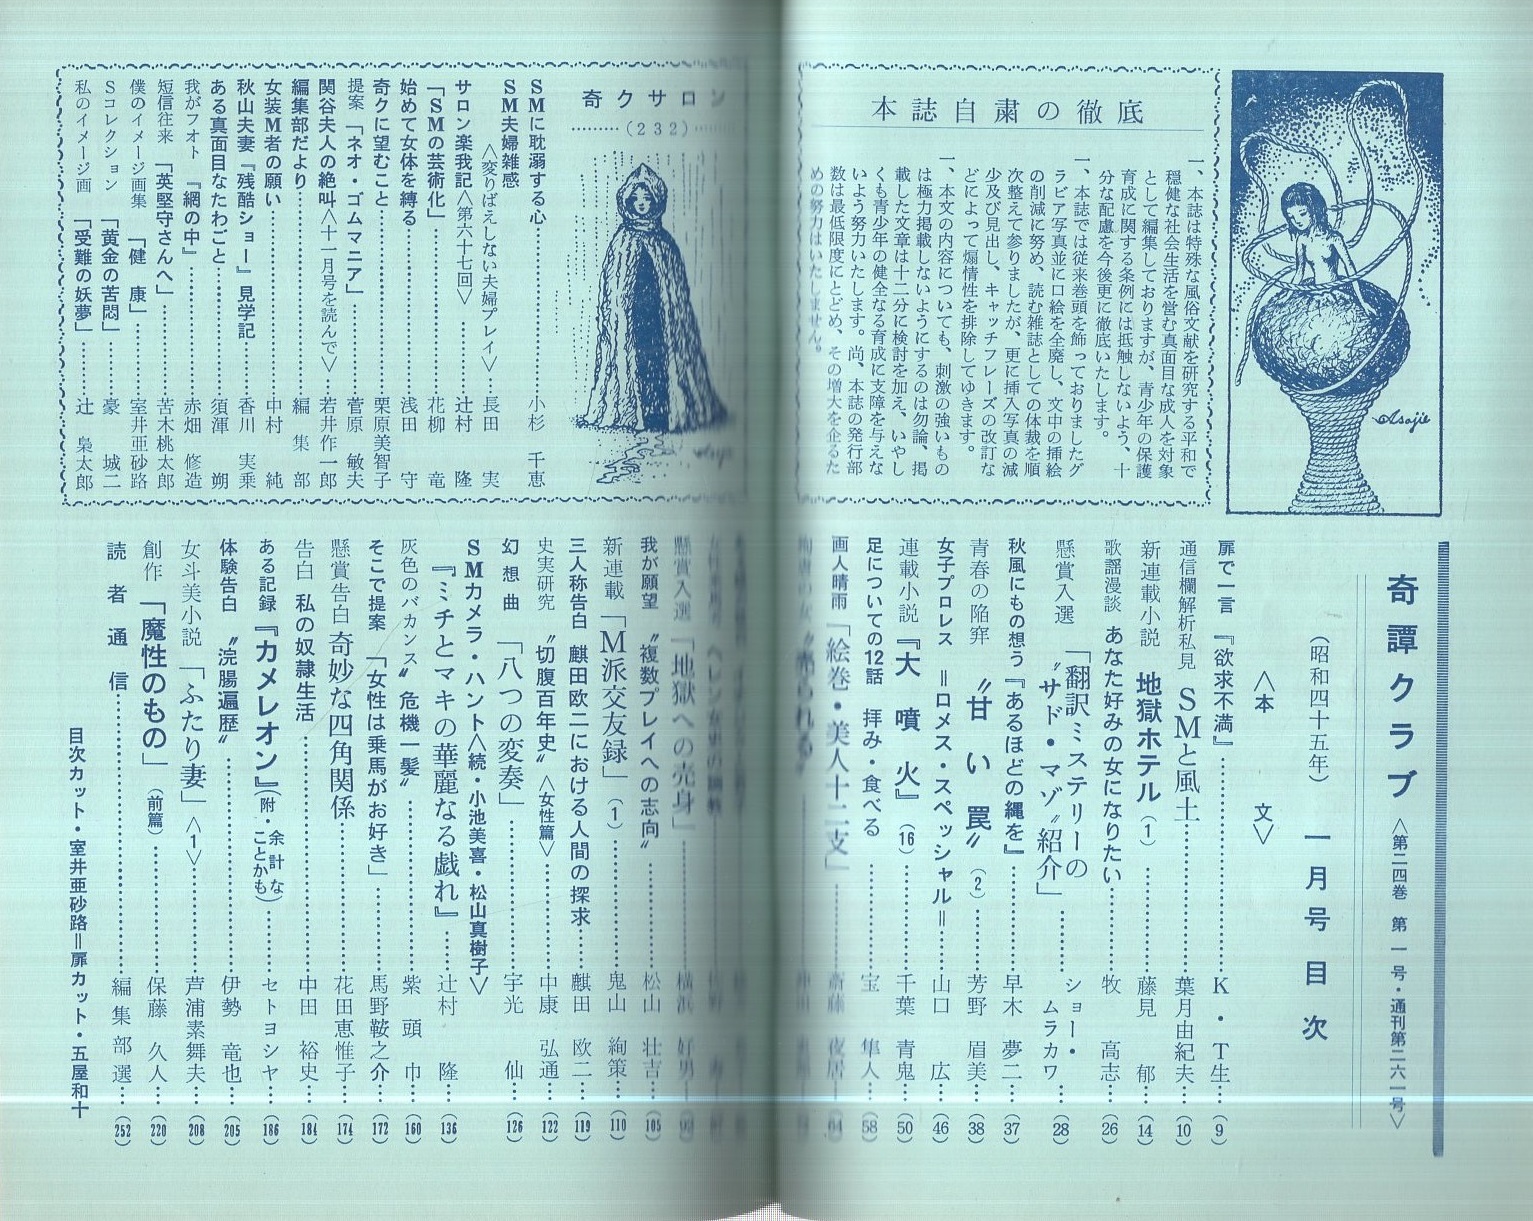 奇譚クラブ
〈第二四巻 第一号・通刊第二六一号〉
(昭和四十五年) 一月号目次
〈本文〉
扉で一言『欲求不満』………K・T生…(9)
通信欄解析私見 SMと風土………葉月由紀夫…(10)
新連載小説 地獄ホテル(1)………藤見 郁…(14)
歌謡漫談 あなた好みの女になりたい………牧 高志…(26)
懸賞入選 「翻訳ミステリーの
〝サド・マゾ〟紹介」………ショー・ムラカワ…(28)
秋風にもの想う『あるほどの縄を』………早木 夢二…(37)
青春の陥穽 〝甘い罠〟(2)………芳野 眉美…(38)
女子プロレス =ロメス・スペッシャル=………山口 広…(46)
連載小説『大噴火』(16)………千葉 青鬼…(50)
足についての12話 拝み・食べる………宝 隼人…(58)
画人晴雨「絵巻・美人十二支」………斎藤 夜居…(64)
懸賞入選「地獄への売身」………横浜 好男…
我が願望 〝複数プレイへの志向〟………松山 壮吉…(105)
新連載「M派交友録」(1)………鬼山 絢策…(110)
三人称告白 麒田欧二における人間の探求………麒田 欧二…(119)
史実研究 〝切腹百年史〟〈女性篇〉………中康 弘通…(122)
幻想曲 「八つの変奏」………宇光 仙…(126)
SMカメラ・ハント〈続・小池美喜・松山真樹子〉
『ミチとマキの華麗なる戯れ』………辻村 隆…(136)
灰色のバカンス〟危機一髪〟………紫 頭巾…(160)
そこで提案 「女性は乗馬がお好き」………馬野鞍之介…(172)
懸賞告白 奇妙な四角関係………花田恵惟子…(174)
告白 私の奴隷生活………中田 裕史…(184)
ある記録『カメレオン』(附・余計なことかも)………セトヨシヤ…(186)
体験告白 〝浣腸遍歴〟………伊勢 竜也…(205)
女斗美小説「ふたり妻」〈1〉………芦浦素舞夫…(208)
創作 「魔性のもの」(前篇)………保藤 久人…(220)
読者通信………編集部選…(252)
目次カット・室井亜砂路=扉カット・五屋和十
Asaji
本誌自粛の徹底
一、本誌は特殊な風俗文献を研究する平和で
穏健な社会生活を営む真面目な成人を対象
として編集しておりますが、青少年の保護
育成に関する条例には抵触しないよう、十
分な配慮を今後更に徹底いたします。
一、本誌では従来巻頭を飾っておりましたグ
ラビア写真並に口絵を全廃し、文中の挿絵
の削減に努め、読む雑誌としての体裁を順
次整えて参りましたが、更に挿入写真の減
少及び見出し、キャッチフレーズの改訂な
どによって煽情性を排除してゆきます。
一、本文の内容についても、刺激の強いもの
は極力掲載しないようにするのは勿論、掲
載した文章は十二分に検討を加え、いやし
くも青少年の健全なる育成に支障を与えな
いよう努力いたします。尚、本誌の発行部
数は最低限度にとどめ、その増大を企るた
めの努力はいたしません。
奇クサロン
………(232)………
SMに耽溺する心………小杉 千恵
SM夫婦雑感
〈変りばえしない夫婦プレイ〉…長田 実
サロン楽我記〈第六十七回〉………辻村 隆
「SMの芸術化」………花柳 竜
始めて女体を縛る………浅田 守
奇クに望むこと………栗原美智子
提案「ネオ・ゴムマニア」………菅原 敏夫
関谷夫人の絶叫〈十一月号を読んで〉…若井作一郎
編集部だより………編集部
女装M者の願い………中村 純
秋山夫妻『残酷ショー』見学記………香川 実乗
ある真面目なたわごと………須渾 朔
我がフォト 『網の中』………赤畑 修造
短信往来 「英堅守さんへ」………苦木桃太郎
僕のイメージ画集 「健康」………室井亜砂路
Sコレクション 「黄金の苦悶」………豪 城二
私のイメージ画 「受難の妖夢」………辻 梟太郎